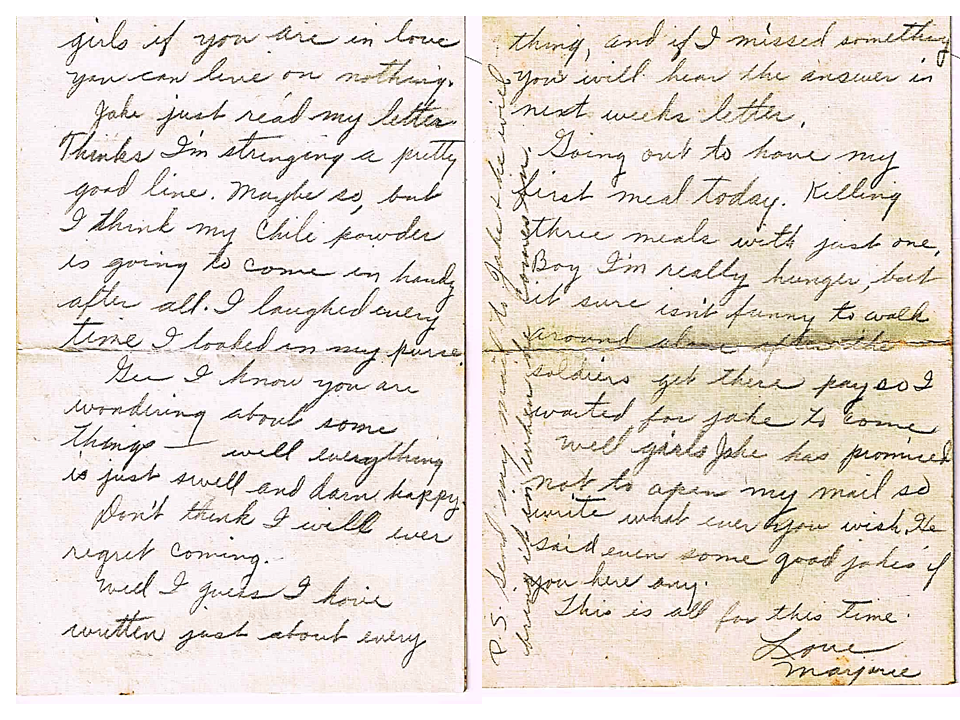 girls if you are in love
you can live on nothing.
Jake just read my letter
Thinks I'm stringing a pretty
good line. Maybe so, but
I think my Chili powder
is going to come in handy
after all. I laughed every
time I looked in my purse.
Gee I know you are
wondering about some
things — well everything
is just swell and darn happy.
Don't think I will ever
regret coming.
Well I guess I have
written just about every
thing, and if I missed something
you will hear the answer in
next weeks letter.
Going out to have my
first meal today. Killing
three meals with just one,
Boy I'm really hunger, but
it sure isn't funny to walk
around alone after the
soldiers get there pay so I
waited for jake to come
Well girls Jake has promised
not to open my mail so
write what ever you wish. He
said even some good jokes if
you here any.
This is all for this time.
Love
Marjorie
P.S. Send my mail to Jake & he will
bring it in when he comes in.